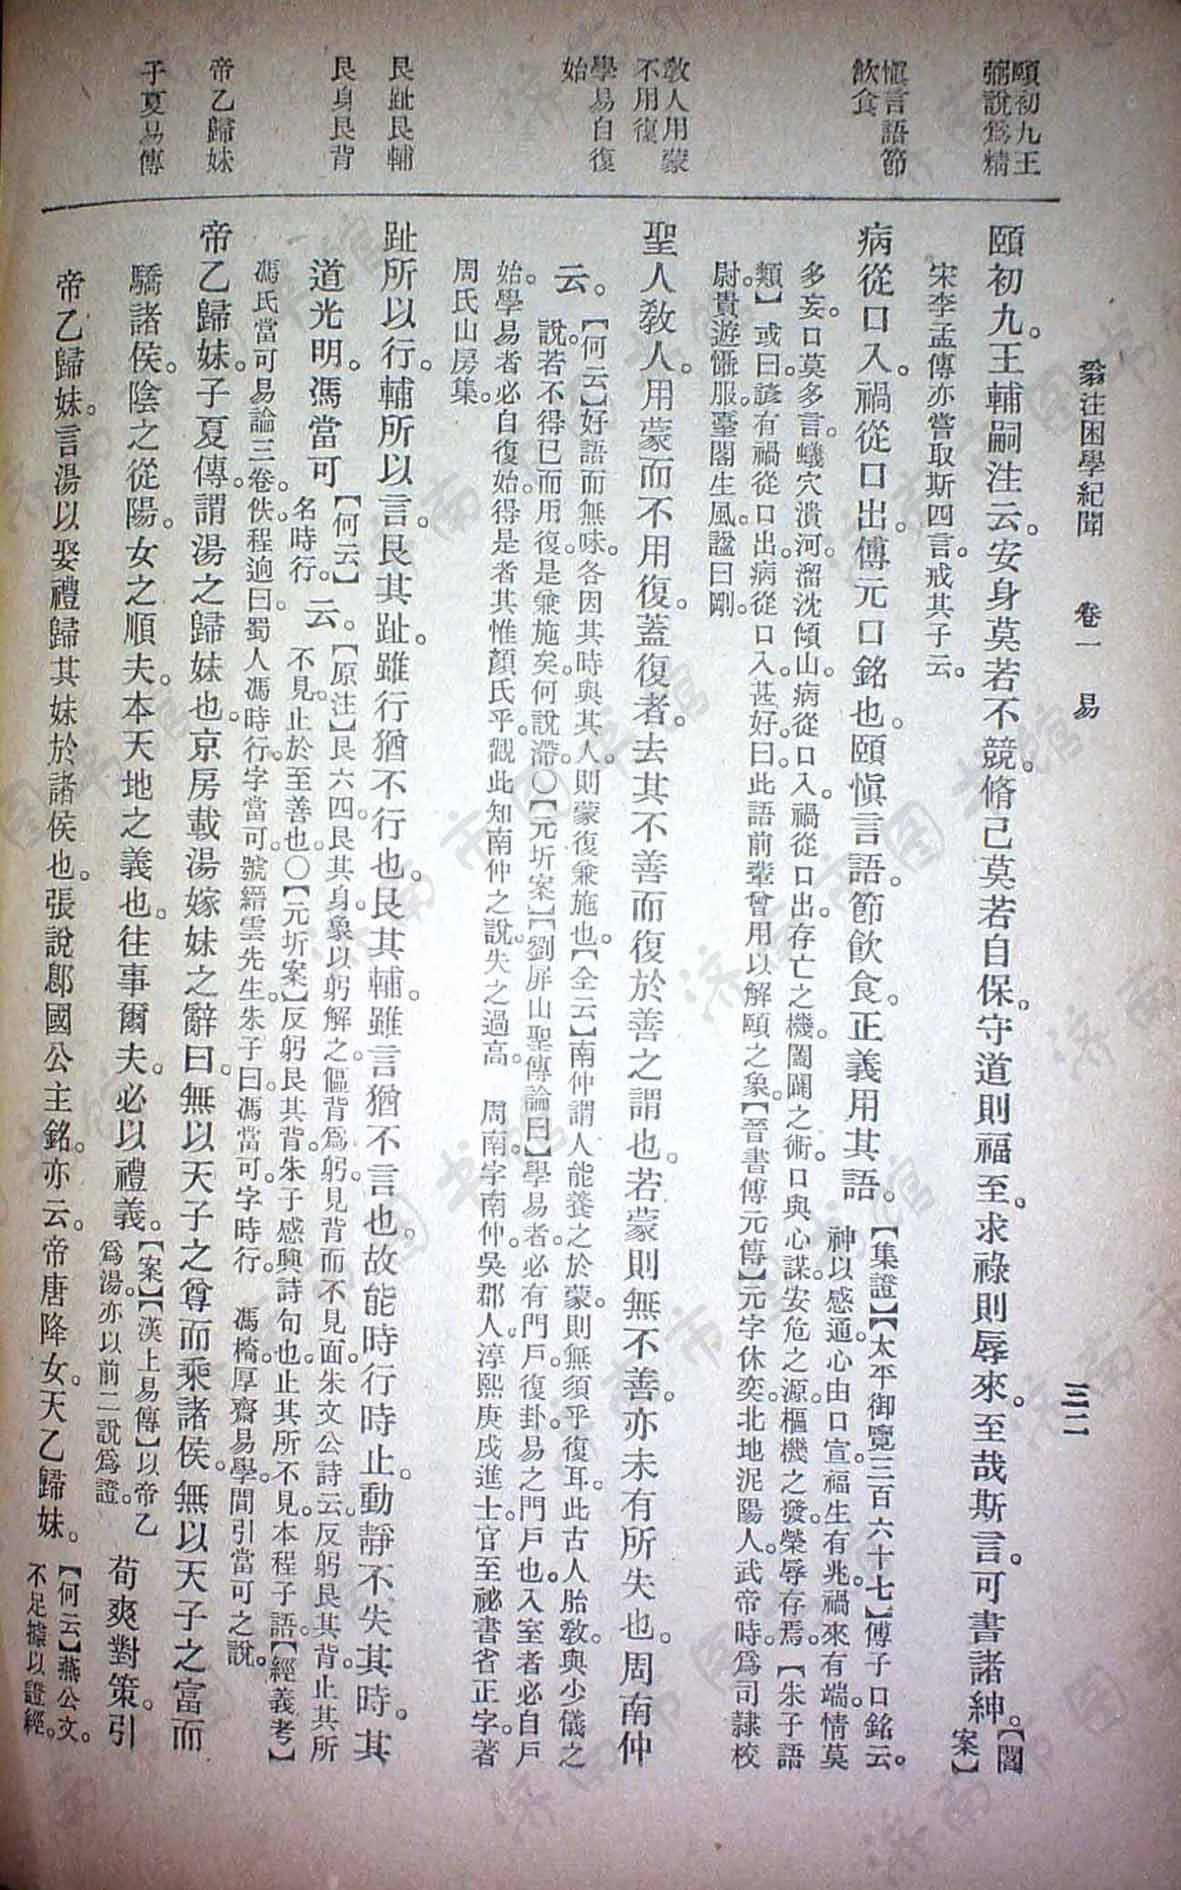 翁注困學紀聞 卷一 易 三二
頤初九王
弼說爲精
頤初九。王輔嗣注云。安身莫若不競。脩己莫若自保。守道則福至。求祿則辱來。至哉斯言。可書諸紳。【閻案】
宋李孟傳亦嘗取斯四言。戒其子云。
愼言語節
飲食
病從口入。禍從口出。傅元口銘也。頤愼言語。節飲食。正義用其語。【集證】【太平御覽三百六十七】傅子口銘云。
神以感通。心由口宣。福生有兆。禍來有端。情莫
多妄。口莫多言。蟻穴潰河。溜沈傾山。病從口入。禍從口出。存亡之機。闔闢之術。口與心謀。安危之源。樞機之發。榮辱存焉。【朱子語
類】或曰。諺有禍從口出。病從口入。甚好。曰。此語前輩曾用以解頤之象。【晉書傅元傳】元字休奕。北地泥陽人。武帝時。爲司隸校
尉。貴遊懾服。臺閣生風。諡曰剛。
敎人用蒙
不用復
聖人敎人。用蒙而不用復。蓋復者。去其不善而復於善之謂也。若蒙則無不善。亦未有所失也。周南仲
學易自復
始
云。【何云】好語而無味。各因其時與其人。則蒙復兼施也。【全云】南仲謂人能養之於蒙。則無須乎復耳。此古人胎敎。與少儀之
說。若不得已而用復。是兼施矣。何說滯。〇【元圻案】【劉屏山聖傳論曰】學易者。必有門戶。復卦。易之門戶也。入室者必自戶
始。學易者必自復始。得是者其惟顏氏乎。觀此知南仲之說。失之過高。 周南。字南仲。吳郡人。淳熙庚戌進士。官至祕書省正字。著
周氏山房集。
艮趾艮輔
趾所以行。輔所以言。艮其趾。雖行猶不行也。艮其輔。雖言猶不言也。故能時行時止。動靜不失其時。其
艮身艮背
道光明。馮當可【何云】名時行。云。【原注】艮六四。艮其身。象以躬解之。傴背爲躬。見背而不見面。朱文公詩云。反躬艮其背。止其所
不見。止於至善也。〇【元圻案】反躬艮其背。朱子感興詩句也。止其所不見。本程子語。【經義考】
馮氏當可易論三卷。佚。程迥曰。蜀人馮時行。字當可。號縉雲先生。朱子曰。馮當可。字時行。 馮椅。厚齋易學。間引當可之說。
帝乙歸妹
帝乙歸妹。子夏傳。謂湯之歸妹也。京房載湯嫁妹之辭曰。無以天子之尊而乘諸侯。無以天子之富而
子夏易傳
驕諸侯。陰之從陽。女之順夫。本天地之義也。往事爾夫。必以禮義。【案】【漢上易傳】以帝乙爲湯。亦以前二說爲證。荀爽對策。引
帝乙歸妹。言湯以娶禮歸其妹於諸侯也。張說鄎國公主銘。亦云。帝唐降女。天乙歸妹。【何云】燕公文。不足據以證經。